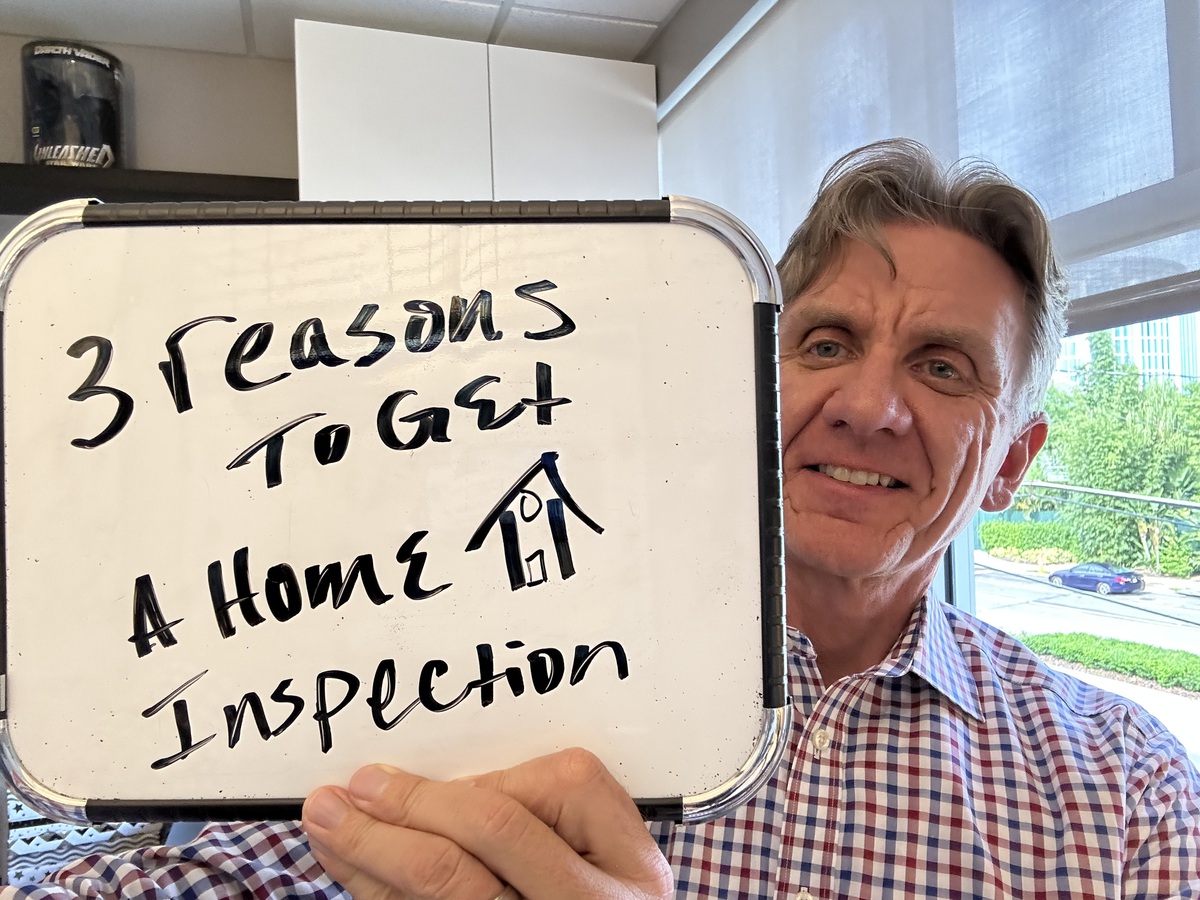 DARTH VADER
UNLEASHED
STAR WARS
3 reasons
To GEt
A HomE
Inspection